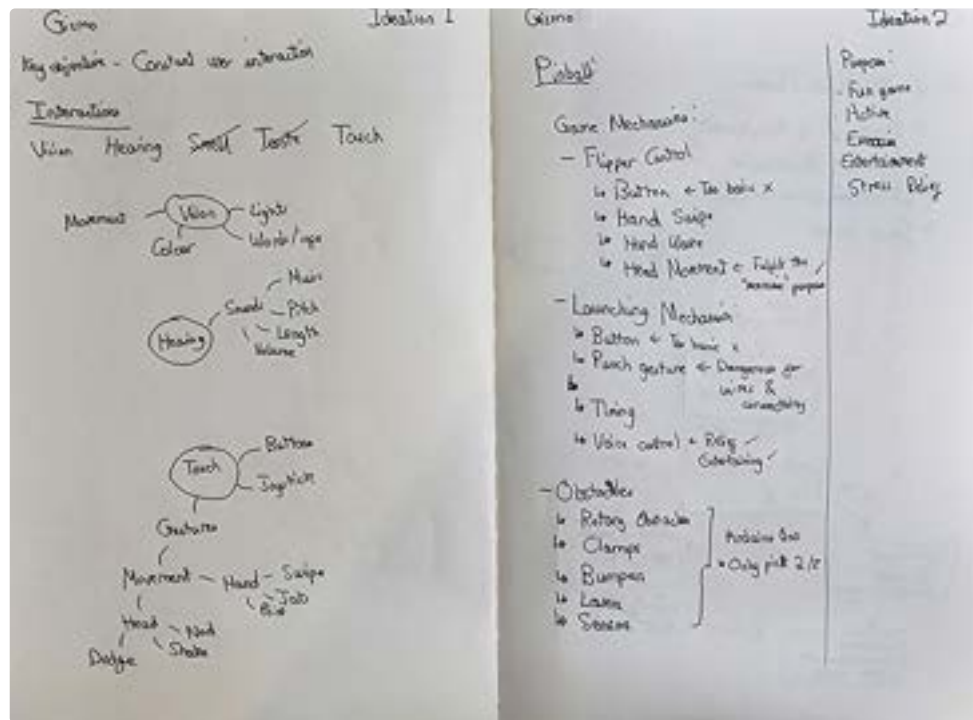 Gizmo
Ideation 1
Key objective - Constant user interaction
Interactions
Vision Hearing Smell Taste Touch
Movement
Vision
Light
Colour
Hearing
Sound
Music
Pitch
Length
Volume
Touch
Buttons
Joystick
Gestures
Movement
Hand
Swipe
Jab
Head
Nod
Shake
Dodge
Gizmo
Ideation 2
Pinball
Game Mechanisms:
- Flipper Control
Button ← Too basic x
Hand Swipe
Hand Wave
Head Movement ← Fulfill the
purpose
- Launching Mechanism
Button ← Too basic x
Punch gesture ← Dangerous for
wires &
connectivity
Timing
Voice control ←
Entertaining ✓
- Obstacles
Rotary Obstacles
Clamps
Bumpers
Arduino Uno
* Only pick 2
Purpose
- Fun game
Active
Exercise
Entertainment
Stress Relief